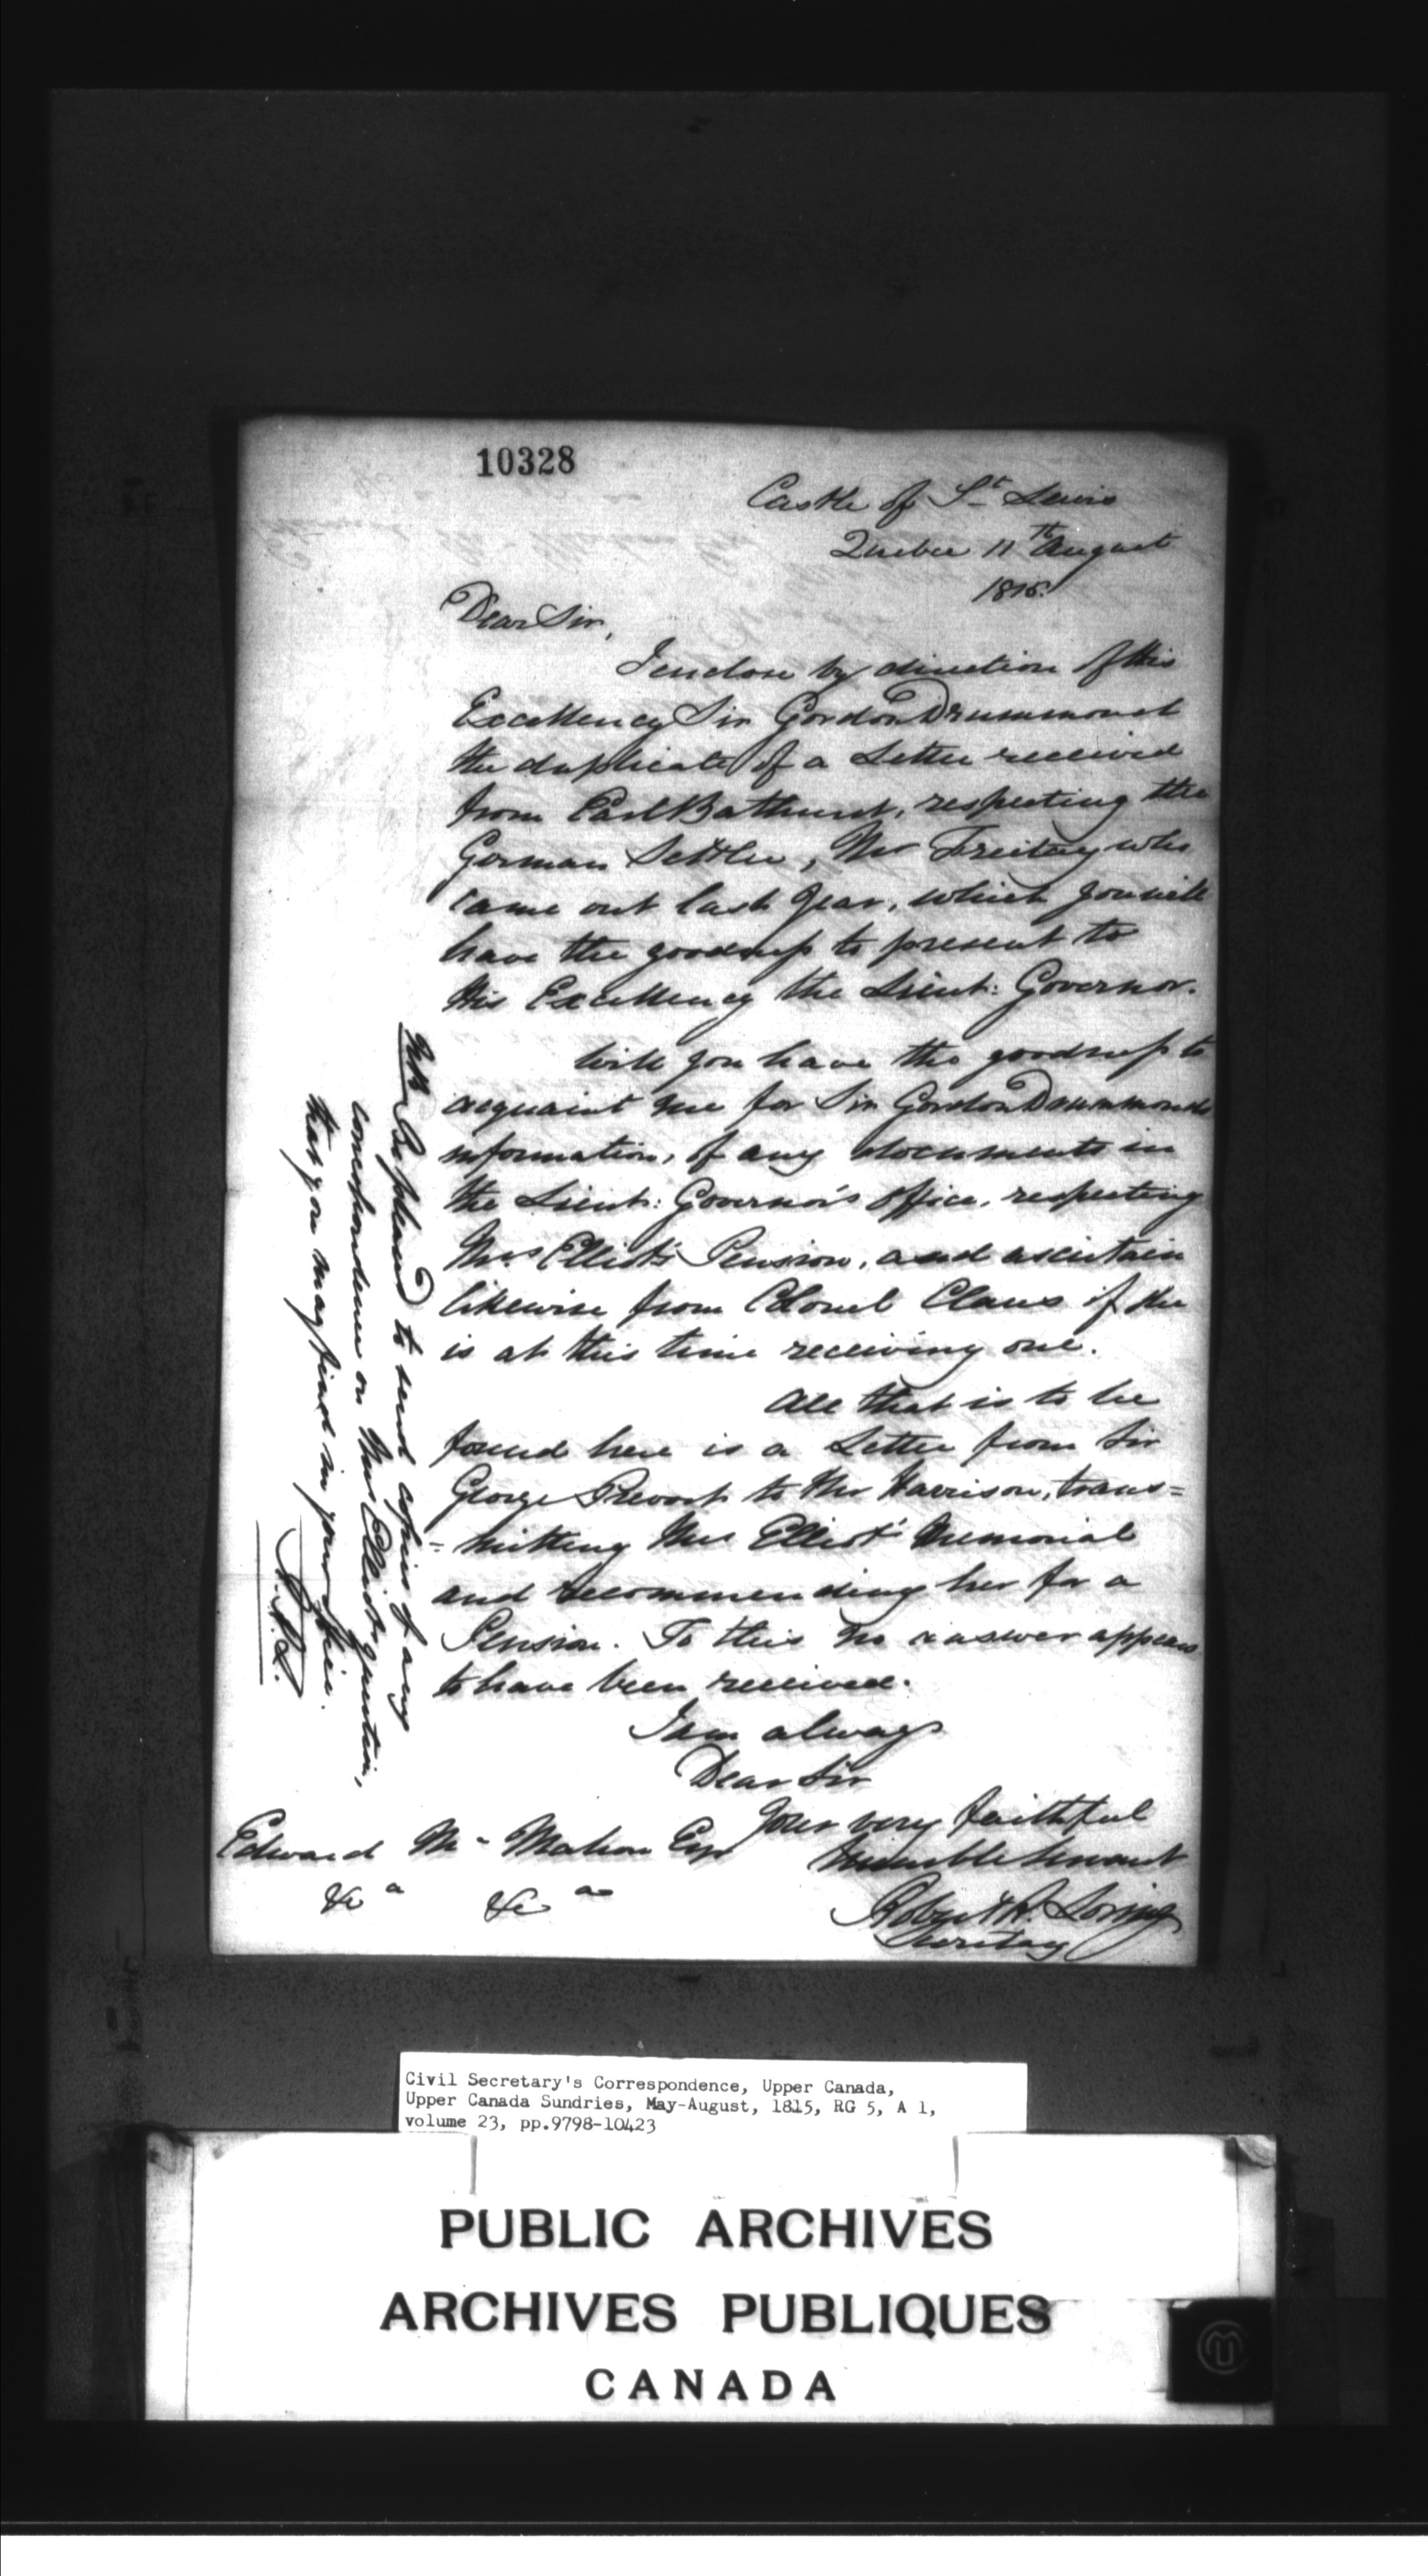 10328
Castle of St Lewis
Quebec 11th August
1815.
Dear Sir,
I enclose by direction of His
Excellency Sir Gordon Drummond
the duplicate of a Letter received
from Earl Bathurst, respecting the
German Settler, Mr Freitag who
came out last Year, which you will
have the goodness to present to
His Excellency the Lieut: Governor.
Will you have the goodness to
acquaint me for Sir Gordon Drummonds
information, of any documents in
the Lieut: Governor's Office, respecting
Mrs Elliot's Pension, and ascertain
likewise from Colonel Claus if she
is at this time receiving one.
All that is to be
found here is a Letter from Sir
George Prevost to Mr Harrison, trans=
=mitting Mrs Elliot's Memorial
and recommending her for a
Pension. To this no answer appears
to have been received.
I am always
Dear Sir
Your very faithful
humble Servant
Robert R. Loring
Secretary
Edward McMahon Esqr
&c a &c a
NB Be pleased to send copies of any
correspondence on Mrs Elliot's question,
that you may find in your office.
R.R.L.
Civil Secretary's Correspondence, Upper Canada,
Upper Canada Sundries, May-August, 1815, RG 5, A 1,
volume 23, pp.9798-10423
PUBLIC ARCHIVES
ARCHIVES PUBLIQUES
CANADA